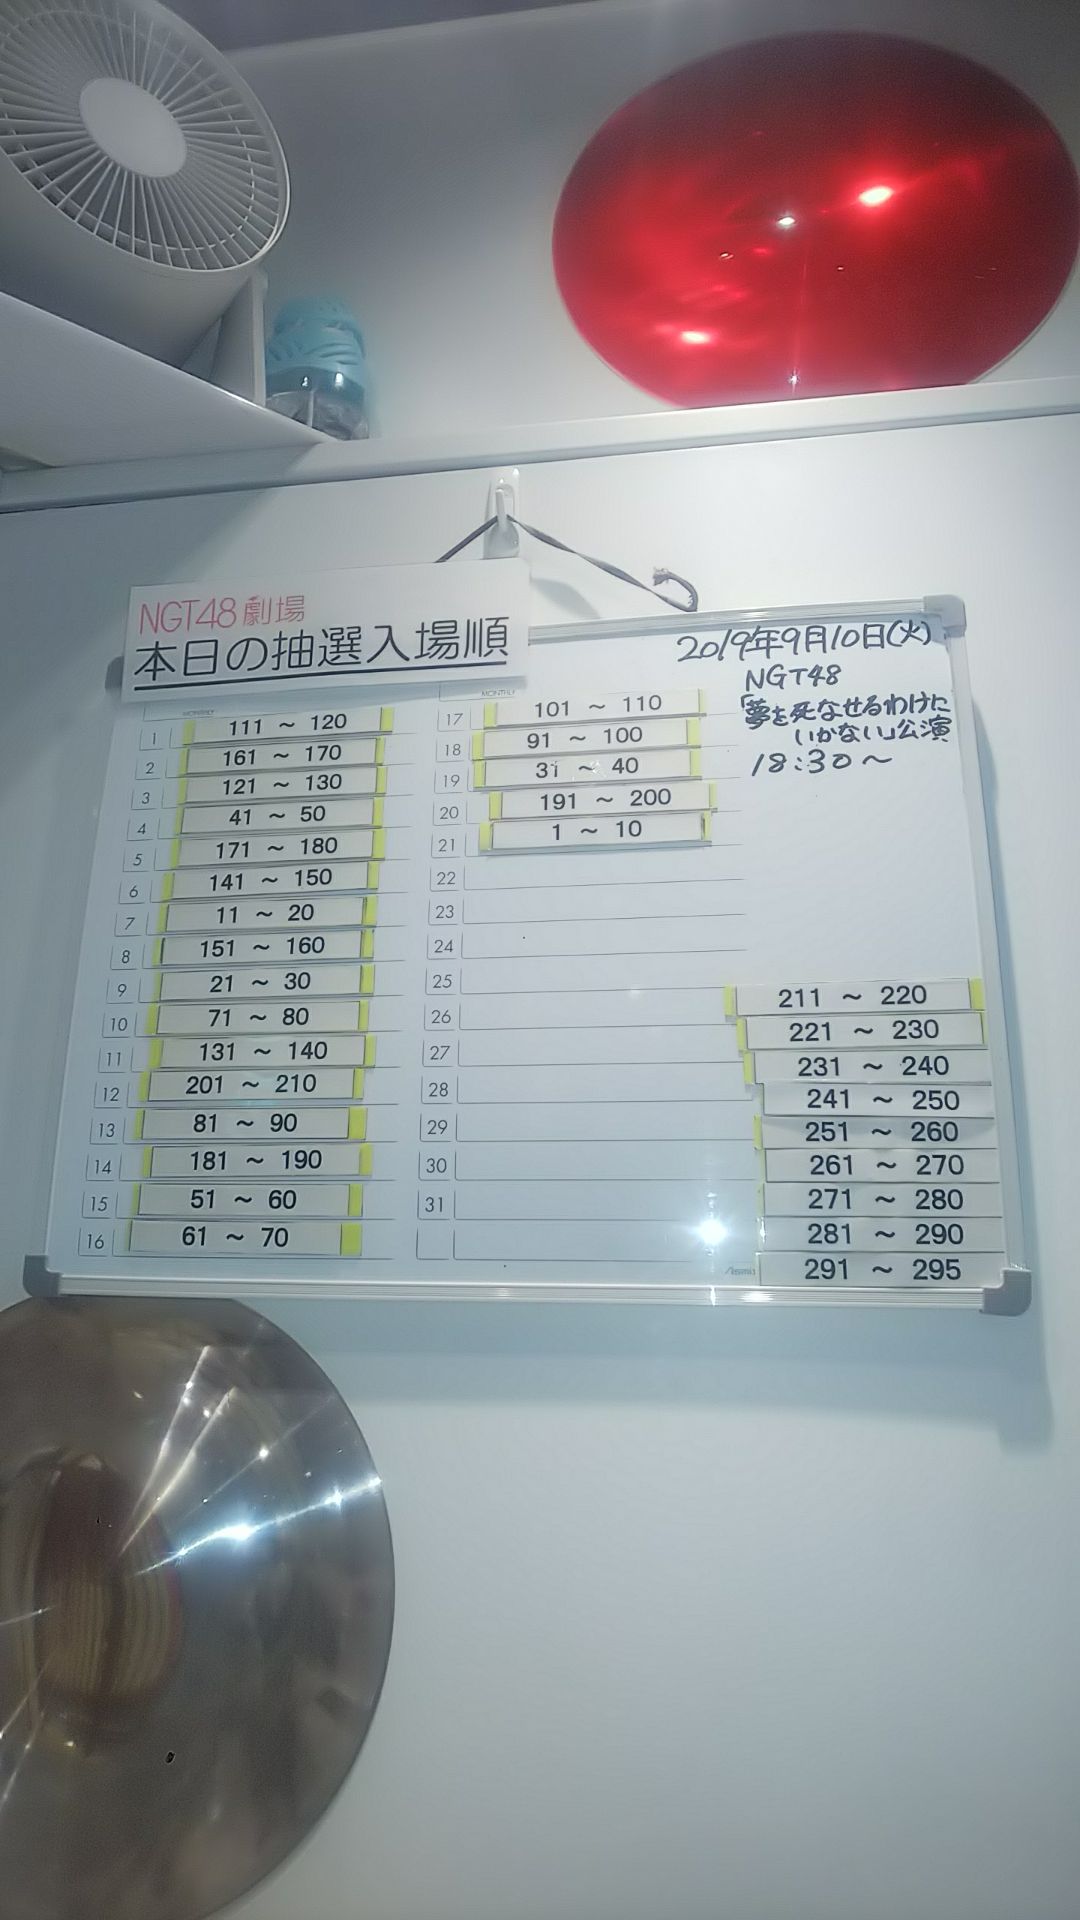 NGT48劇場
本日の抽選入場順
2019年9月10日(火)
NGT48
「夢を死なせるわけに
いかない」公演
18:30～
MONTHLY
1 111 ～ 120
2 161 ～ 170
3 121 ～ 130
4 41 ～ 50
5 171 ～ 180
6 141 ～ 150
7 11 ～ 20
8 151 ～ 160
9 21 ～ 30
10 71 ～ 80
11 131 ～ 140
12 201 ～ 210
13 81 ～ 90
14 181 ～ 190
15 51 ～ 60
16 61 ～ 70
MONTHLY
17 101 ～ 110
18 91 ～ 100
19 31 ～ 40
20 191 ～ 200
21 1 ～ 10
22
23
24
25
26
27
28
29
30
31
211 ～ 220
221 ～ 230
231 ～ 240
241 ～ 250
251 ～ 260
261 ～ 270
271 ～ 280
281 ～ 290
291 ～ 295